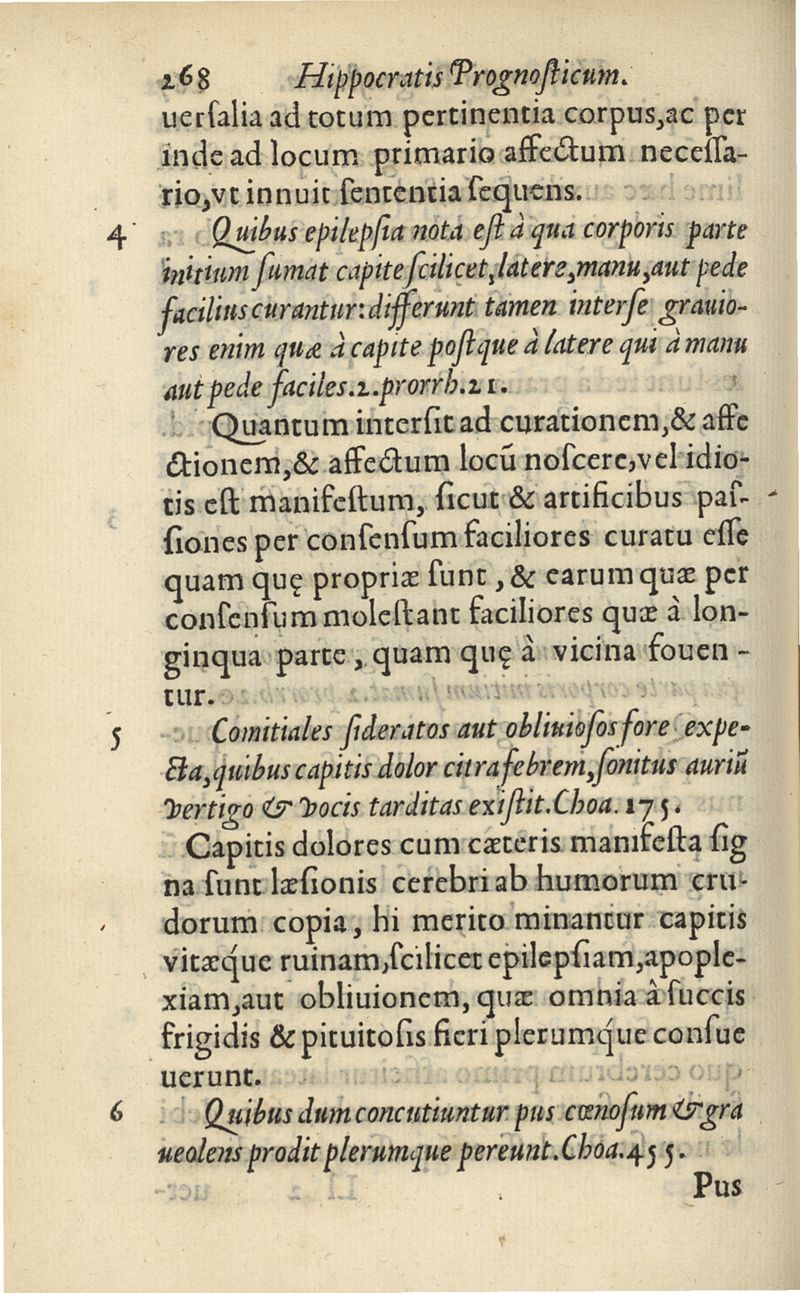 268 Hippocratis Prognoſticum.
uerſalia ad totum pertinentia corpus, ac per
inde ad locum primario affectum neceſſa-
rio, vt innuit ſententia ſequens.
4 Quibus epilepſia nota eſt à qua corporis parte
initium ſumat capite ſcilicet, latere, manu, aut pede
facilius curantur: differunt tamen interſe grauio-
res enim quæ à capite poſtque à latere qui à manu
aut pede faciles. 2. prorrh. 21.
Quantum interſit ad curationem, & affe
ctionem, & affectum locũ noſcere, vel idio-
tis eſt manifeſtum, ſicut & artificibus paſ-
ſiones per conſenſum faciliores curatu eſſe
quam quę propriæ ſunt, & earum quæ per
conſenſum moleſtant faciliores quæ à lon-
ginqua parte, quam quę à vicina fouen-
tur.
5 Comitiales ſideratos aut obliuioſos fore expe-
cta, quibus capitis dolor citra febrem, ſonitus auriũ
vertigo & vocis tarditas exiſtit. Choa. 175.
Capitis dolores cum cæteris manifeſta ſig
na ſunt læſionis cerebri ab humorum cru-
dorum copia, hi merito minantur capitis
vitæq́ue ruinam, ſcilicet epilepſiam, apople-
xiam, aut obliuionem, quæ omnia à ſuccis
frigidis & pituitoſis fieri plerumq́ue conſue
uerunt.
6 Quibus dum concutiuntur pus cœnoſum & gra
ueolens prodit plerumque pereunt. Choa. 455.
Pus